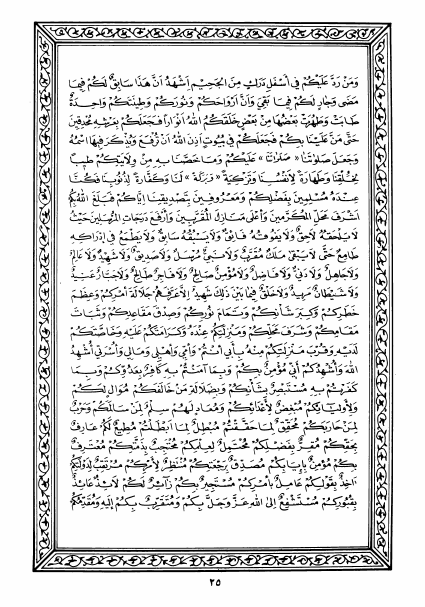 وَمَنْ رَدَّ عَلَيْكُمْ فِي أَسْفَلِ دَرَكٍ مِنَ الْجَحِيمِ أَشْهَدُ أَنَّ هَذَا سَابِقٌ لَكُمْ فِيمَا
مَضَى وَجَارٍ لَكُمْ فِيمَا بَقِيَ وَأَنَّ أَرْوَاحَكُمْ وَنُورَكُمْ وَطِينَتَكُمْ وَاحِدَةٌ
طَابَتْ وَطَهُرَتْ بَعْضُهَا مِنْ بَعْضٍ خَلَقَكُمُ اللهُ أَنْوَاراً فَجَعَلَكُمْ بِعَرْشِهِ مُحْدِقِينَ
حَتَّى مَنَّ عَلَيْنَا بِكُمْ فَجَعَلَكُمْ فِي بُيُوتٍ أَذِنَ اللهُ أَنْ تُرْفَعَ وَيُذْكَرَ فِيهَا اسْمُهُ
وَجَعَلَ صَلَوَاتِنَا « صَلَوَاتَنَا » عَلَيْكُمْ وَمَا خَصَّنَا بِهِ مِنْ وِلَايَتِكُمْ طِيباً
لِخُلْقِنَا وَطَهَارَةً لِأَنْفُسِنَا وَتَزْكِيَةً « بَرَكَةً » لَنَا وَكَفَّارَةً لِذُنُوبِنَا فَكُنَّا
عِنْدَهُ مُسَلِّمِينَ بِفَضْلِكُمْ وَمَعْرُوفِينَ بِتَصْدِيقِنَا إِيَّاكُمْ فَبَلَغَ اللهُ بِكُمْ
أَشْرَفَ مَحَلِّ الْمُكَرَّمِينَ وَأَعْلَى مَنَازِلِ الْمُقَرَّبِينَ وَأَرْفَعَ دَرَجَاتِ الْمُرْسَلِينَ حَيْثُ
لَا يَلْحَقُهُ لَاحِقٌ وَلَا يَفُوقُهُ فَائِقٌ وَلَا يَسْبِقُهُ سَابِقٌ وَلَا يَطْمَعُ فِي إِدْرَاكِهِ
طَامِعٌ حَتَّى لَا يَبْقَى مَلَكٌ مُقَرَّبٌ وَلَا نَبِيٌّ مُرْسَلٌ وَلَا صِدِّيقٌ وَلَا شَهِيدٌ وَلَا عَالِمٌ
وَلَا جَاهِلٌ وَلَا دَنِيٌّ وَلَا فَاضِلٌ وَلَا مُؤْمِنٌ صَالِحٌ وَلَا فَاجِرٌ طَالِحٌ وَلَا جَبَّارٌ عَنِيدٌ
وَلَا شَيْطَانٌ مَرِيدٌ وَلَا خَلْقٌ فِيمَا بَيْنَ ذَلِكَ شَهِيدٌ إِلَّا عَرَّفَهُمْ جَلَالَةَ أَمْرِكُمْ وَعِظَمَ
خَطَرِكُمْ وَكِبَرَ شَأْنِكُمْ وَتَمَامَ نُورِكُمْ وَصِدْقَ مَقَاعِدِكُمْ وَثَبَاتَ
مَقَامِكُمْ وَشَرَفَ مَحَلِّكُمْ وَمَنْزِلَتِكُمْ عِنْدَهُ وَكَرَامَتَكُمْ عَلَيْهِ وَخَاصَّتَكُمْ
لَدَيْهِ وَقُرْبَ مَنْزِلَتِكُمْ مِنْهُ بِأَبِي أَنْتُمْ وَأُمِّي وَأَهْلِي وَمَالِي وَأُسْرَتِي أُشْهِدُ
اللهَ وَأُشْهِدُكُمْ أَنِّي مُؤْمِنٌ بِكُمْ وَبِمَا آمَنْتُمْ بِهِ كَافِرٌ بِعَدُوِّكُمْ وَبِمَا
كَفَرْتُمْ بِهِ مُسْتَبْصِرٌ بِشَأْنِكُمْ وَبِضَلَالَةِ مَنْ خَالَفَكُمْ مُوَالٍ لَكُمْ
وَلِأَوْلِيَائِكُمْ مُبْغِضٌ لِأَعْدَائِكُمْ وَمُعَادٍ لَهُمْ سِلْمٌ لِمَنْ سَالَمَكُمْ وَحَرْبٌ
لِمَنْ حَارَبَكُمْ مُحَقِّقٌ لِمَا حَقَّقْتُمْ مُبْطِلٌ لِمَا أَبْطَلْتُمْ مُطِيعٌ لَكُمْ عَارِفٌ
بِحَقِّكُمْ مُقِرٌّ بِفَضْلِكُمْ مُحْتَمِلٌ لِعِلْمِكُمْ مُحْتَجِبٌ بِذِمَّتِكُمْ مُعْتَرِفٌ
بِكُمْ مُؤْمِنٌ بِإِيَابِكُمْ مُصَدِّقٌ بِرَجْعَتِكُمْ مُنْتَظِرٌ لِأَمْرِكُمْ مُرْتَقِبٌ لِدَوْلَتِكُمْ
آخِذٌ بِقَوْلِكُمْ عَامِلٌ بِأَمْرِكُمْ مُسْتَجِيرٌ بِكُمْ زَائِرٌ لَكُمْ لَائِذٌ عَائِذٌ
بِقُبُورِكُمْ مُسْتَشْفِعٌ إِلَى اللهِ عَزَّ وَجَلَّ بِكُمْ وَمُتَقَرِّبٌ بِكُمْ إِلَيْهِ وَمُقَدِّمُكُمْ
٢٥